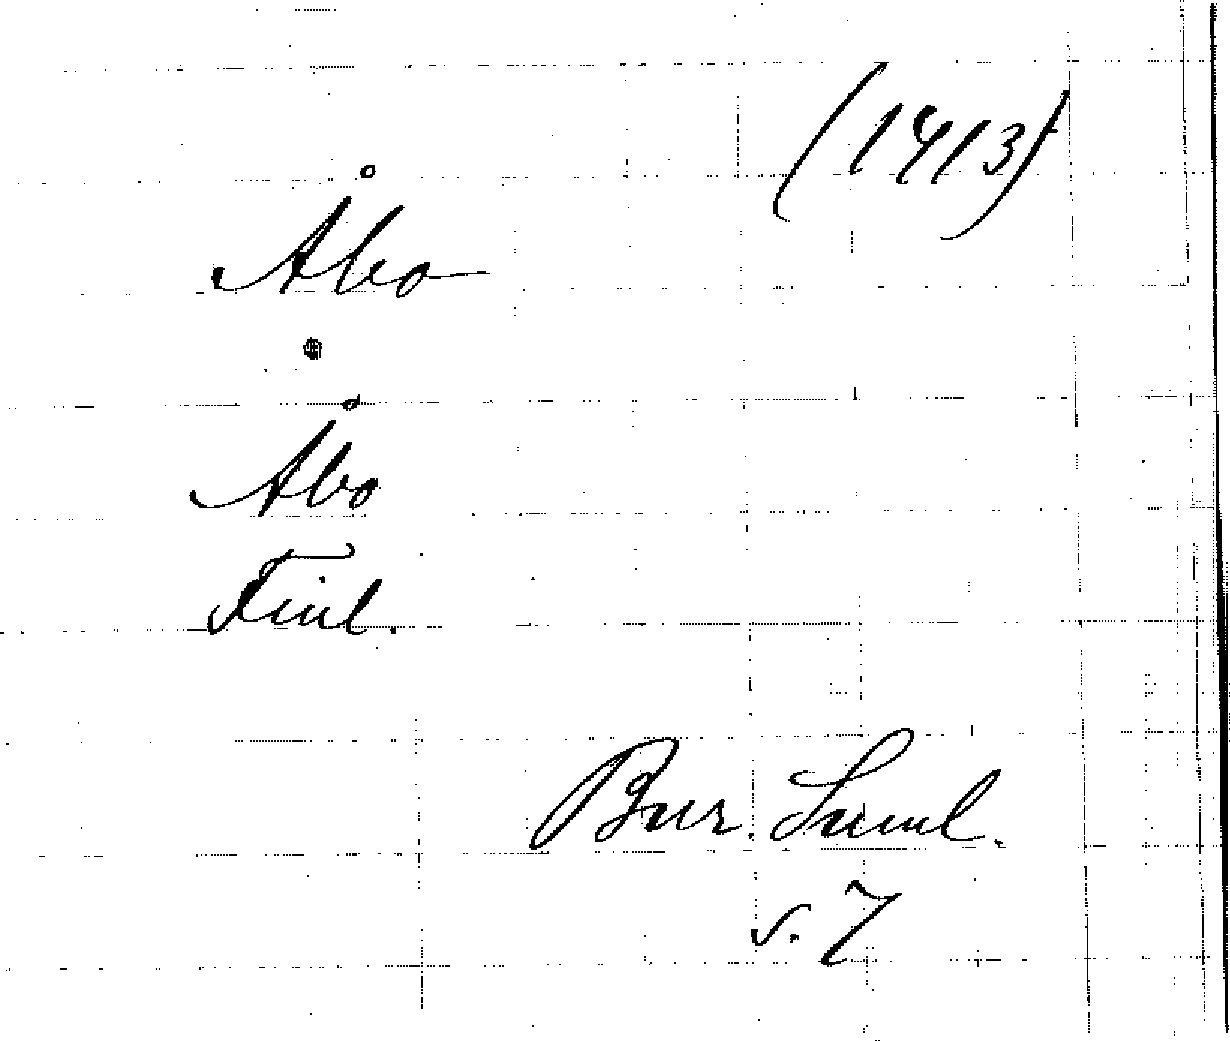 (1413)
Åbo
Åbo
Finl.
Bur. Saml.
s. 7